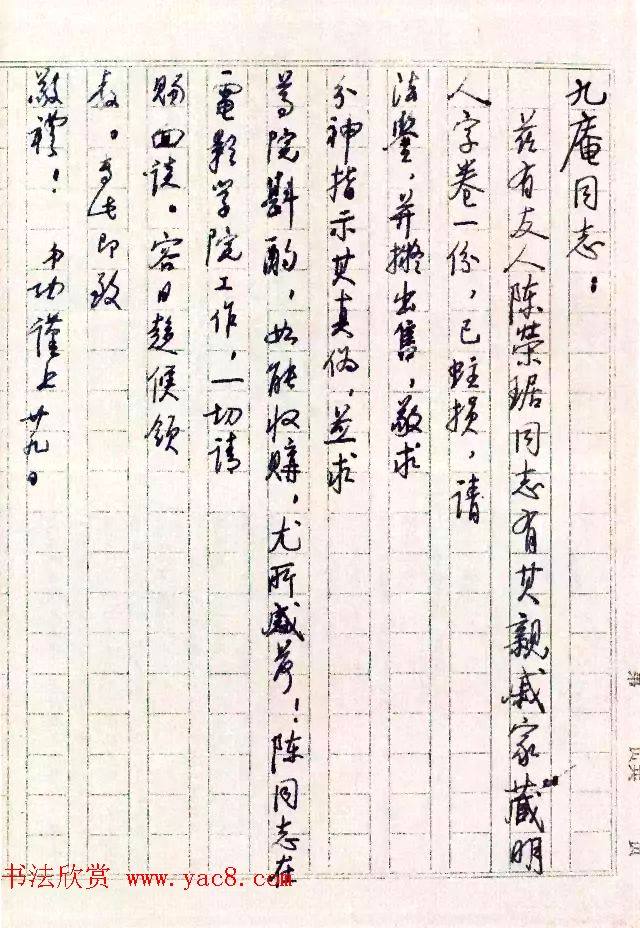 九庵同志：
兹有友人陈荣琚同志有其親戚家藏明
人字卷一份，已蛀损，请
法鑒，并擬出售，敬求
分神指示其真偽，並求
尊院斟酌，如能收購，尤所感荷！陈同志在
電影学院工作，一切请
赐面谈。容日趨候领
教。专此即致
敬禮！ 功谨上 廿九日
书法欣赏 www.yac8.com